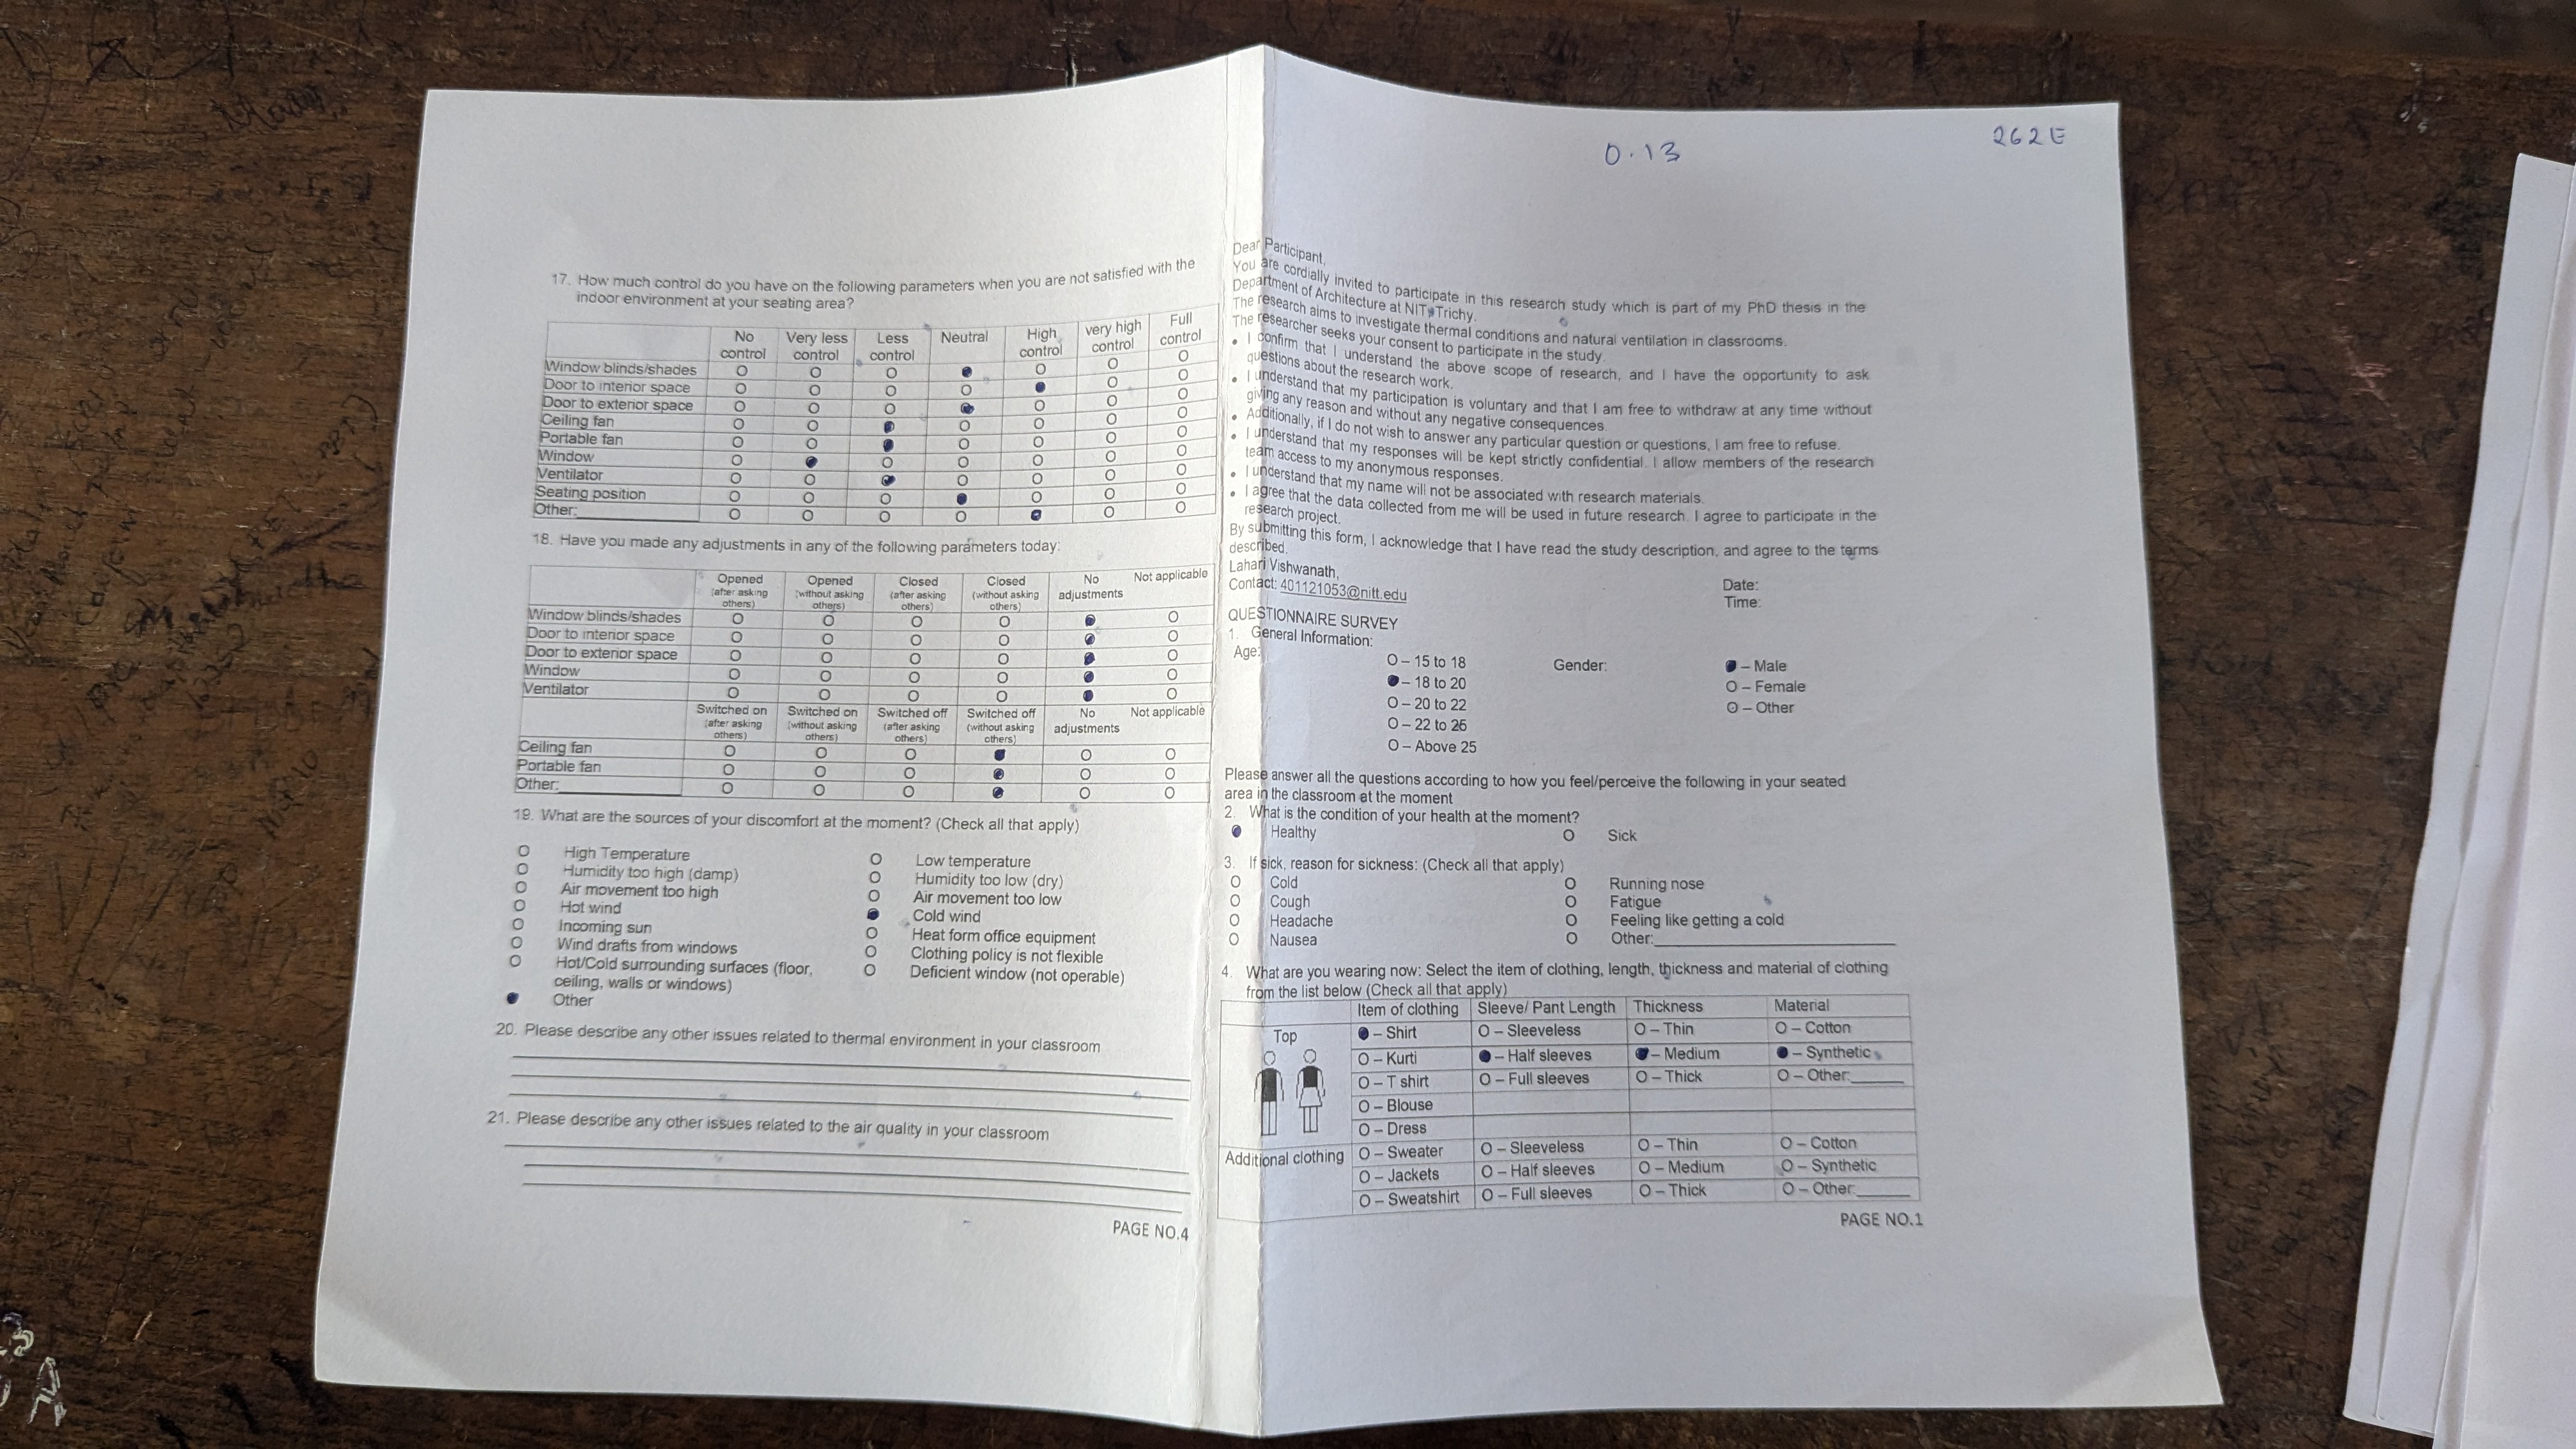 17. How much control do you have on the following parameters when you are not satisfied with the
indoor environment at your seating area?
No control Very less control Less control Neutral High control very high control Full control
Window blinds/shades O O O ● O O O
Door to interior space O O O O ● O O
Door to exterior space O O O ● O O O
Ceiling fan O O ● O O O O
Portable fan O O ● O O O O
Window O ● O O O O O
Ventilator O O ● O O O O
Seating position O O O ● O O O
Other: O O O O ● O O
18. Have you made any adjustments in any of the following parameters today:
Opened (after asking others) Opened (without asking others) Closed (after asking others) Closed (without asking others) No adjustments Not applicable
Window blinds/shades O O O O ● O
Door to interior space O O O O ● O
Door to exterior space O O O O ● O
Window O O O O ● O
Ventilator O O O O ● O
Switched on (after asking others) Switched on (without asking others) Switched off (after asking others) Switched off (without asking others) No adjustments Not applicable
Ceiling fan O O O ● O O
Portable fan O O O ● O O
Other: O O O ● O O
19. What are the sources of your discomfort at the moment? (Check all that apply)
O High Temperature O Low temperature
O Humidity too high (damp) O Humidity too low (dry)
O Air movement too high O Air movement too low
O Hot wind ● Cold wind
O Incoming sun O Heat form office equipment
O Wind drafts from windows O Clothing policy is not flexible
O Hot/Cold surrounding surfaces (floor, O Deficient window (not operable)
ceiling, walls or windows)
● Other
20. Please describe any other issues related to thermal environment in your classroom
21. Please describe any other issues related to the air quality in your classroom
PAGE NO.4
0.13
262E
Dear Participant,
You are cordially invited to participate in this research study which is part of my PhD thesis in the
Department of Architecture at NIT Trichy.
The research aims to investigate thermal conditions and natural ventilation in classrooms.
The researcher seeks your consent to participate in the study.
• I confirm that I understand the above scope of research, and I have the opportunity to ask
questions about the research work.
• I understand that my participation is voluntary and that I am free to withdraw at any time without
giving any reason and without any negative consequences.
• Additionally, if I do not wish to answer any particular question or questions, I am free to refuse.
• I understand that my responses will be kept strictly confidential. I allow members of the research
team access to my anonymous responses.
• I understand that my name will not be associated with research materials.
• I agree that the data collected from me will be used in future research. I agree to participate in the
research project.
By submitting this form, I acknowledge that I have read the study description, and agree to the terms
described.
Lahari Vishwanath,
Contact: 401121053@nitt.edu
Date:
Time:
QUESTIONNAIRE SURVEY
1. General Information:
Age: O – 15 to 18 Gender: ● – Male
● – 18 to 20 O – Female
O – 20 to 22 O – Other
O – 22 to 25
O – Above 25
Please answer all the questions according to how you feel/perceive the following in your seated
area in the classroom at the moment
2. What is the condition of your health at the moment?
● Healthy O Sick
3. If sick, reason for sickness: (Check all that apply)
O Cold O Running nose
O Cough O Fatigue
O Headache O Feeling like getting a cold
O Nausea O Other:
4. What are you wearing now: Select the item of clothing, length, thickness and material of clothing
from the list below (Check all that apply)
Item of clothing Sleeve/ Pant Length Thickness Material
Top ● – Shirt O – Sleeveless O – Thin O – Cotton
O – Kurti ● – Half sleeves ● – Medium ● – Synthetic
O – T shirt O – Full sleeves O – Thick O – Other:
O – Blouse
O – Dress
Additional clothing O – Sweater O – Sleeveless O – Thin O – Cotton
O – Jackets O – Half sleeves O – Medium O – Synthetic
O – Sweatshirt O – Full sleeves O – Thick O – Other:
PAGE NO.1